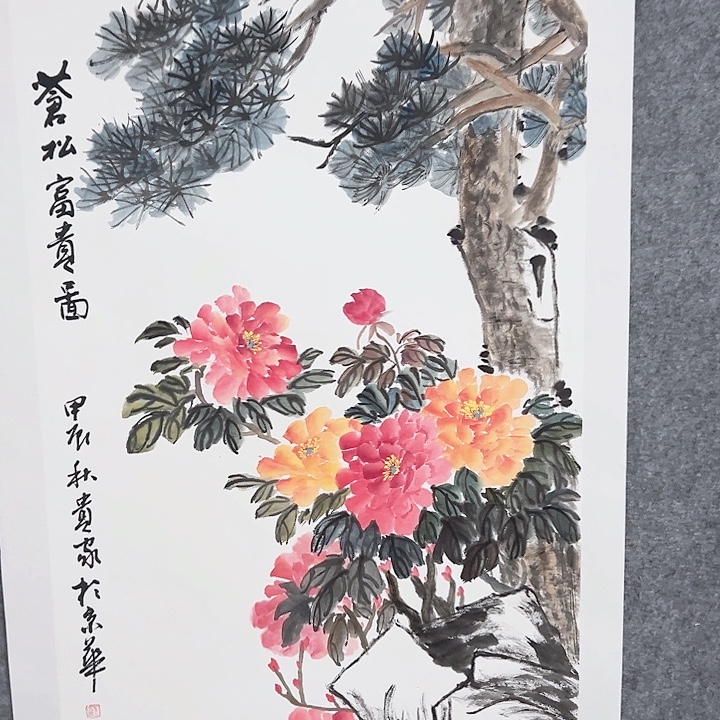 蒼松富貴圖
甲辰秋貴家於京華